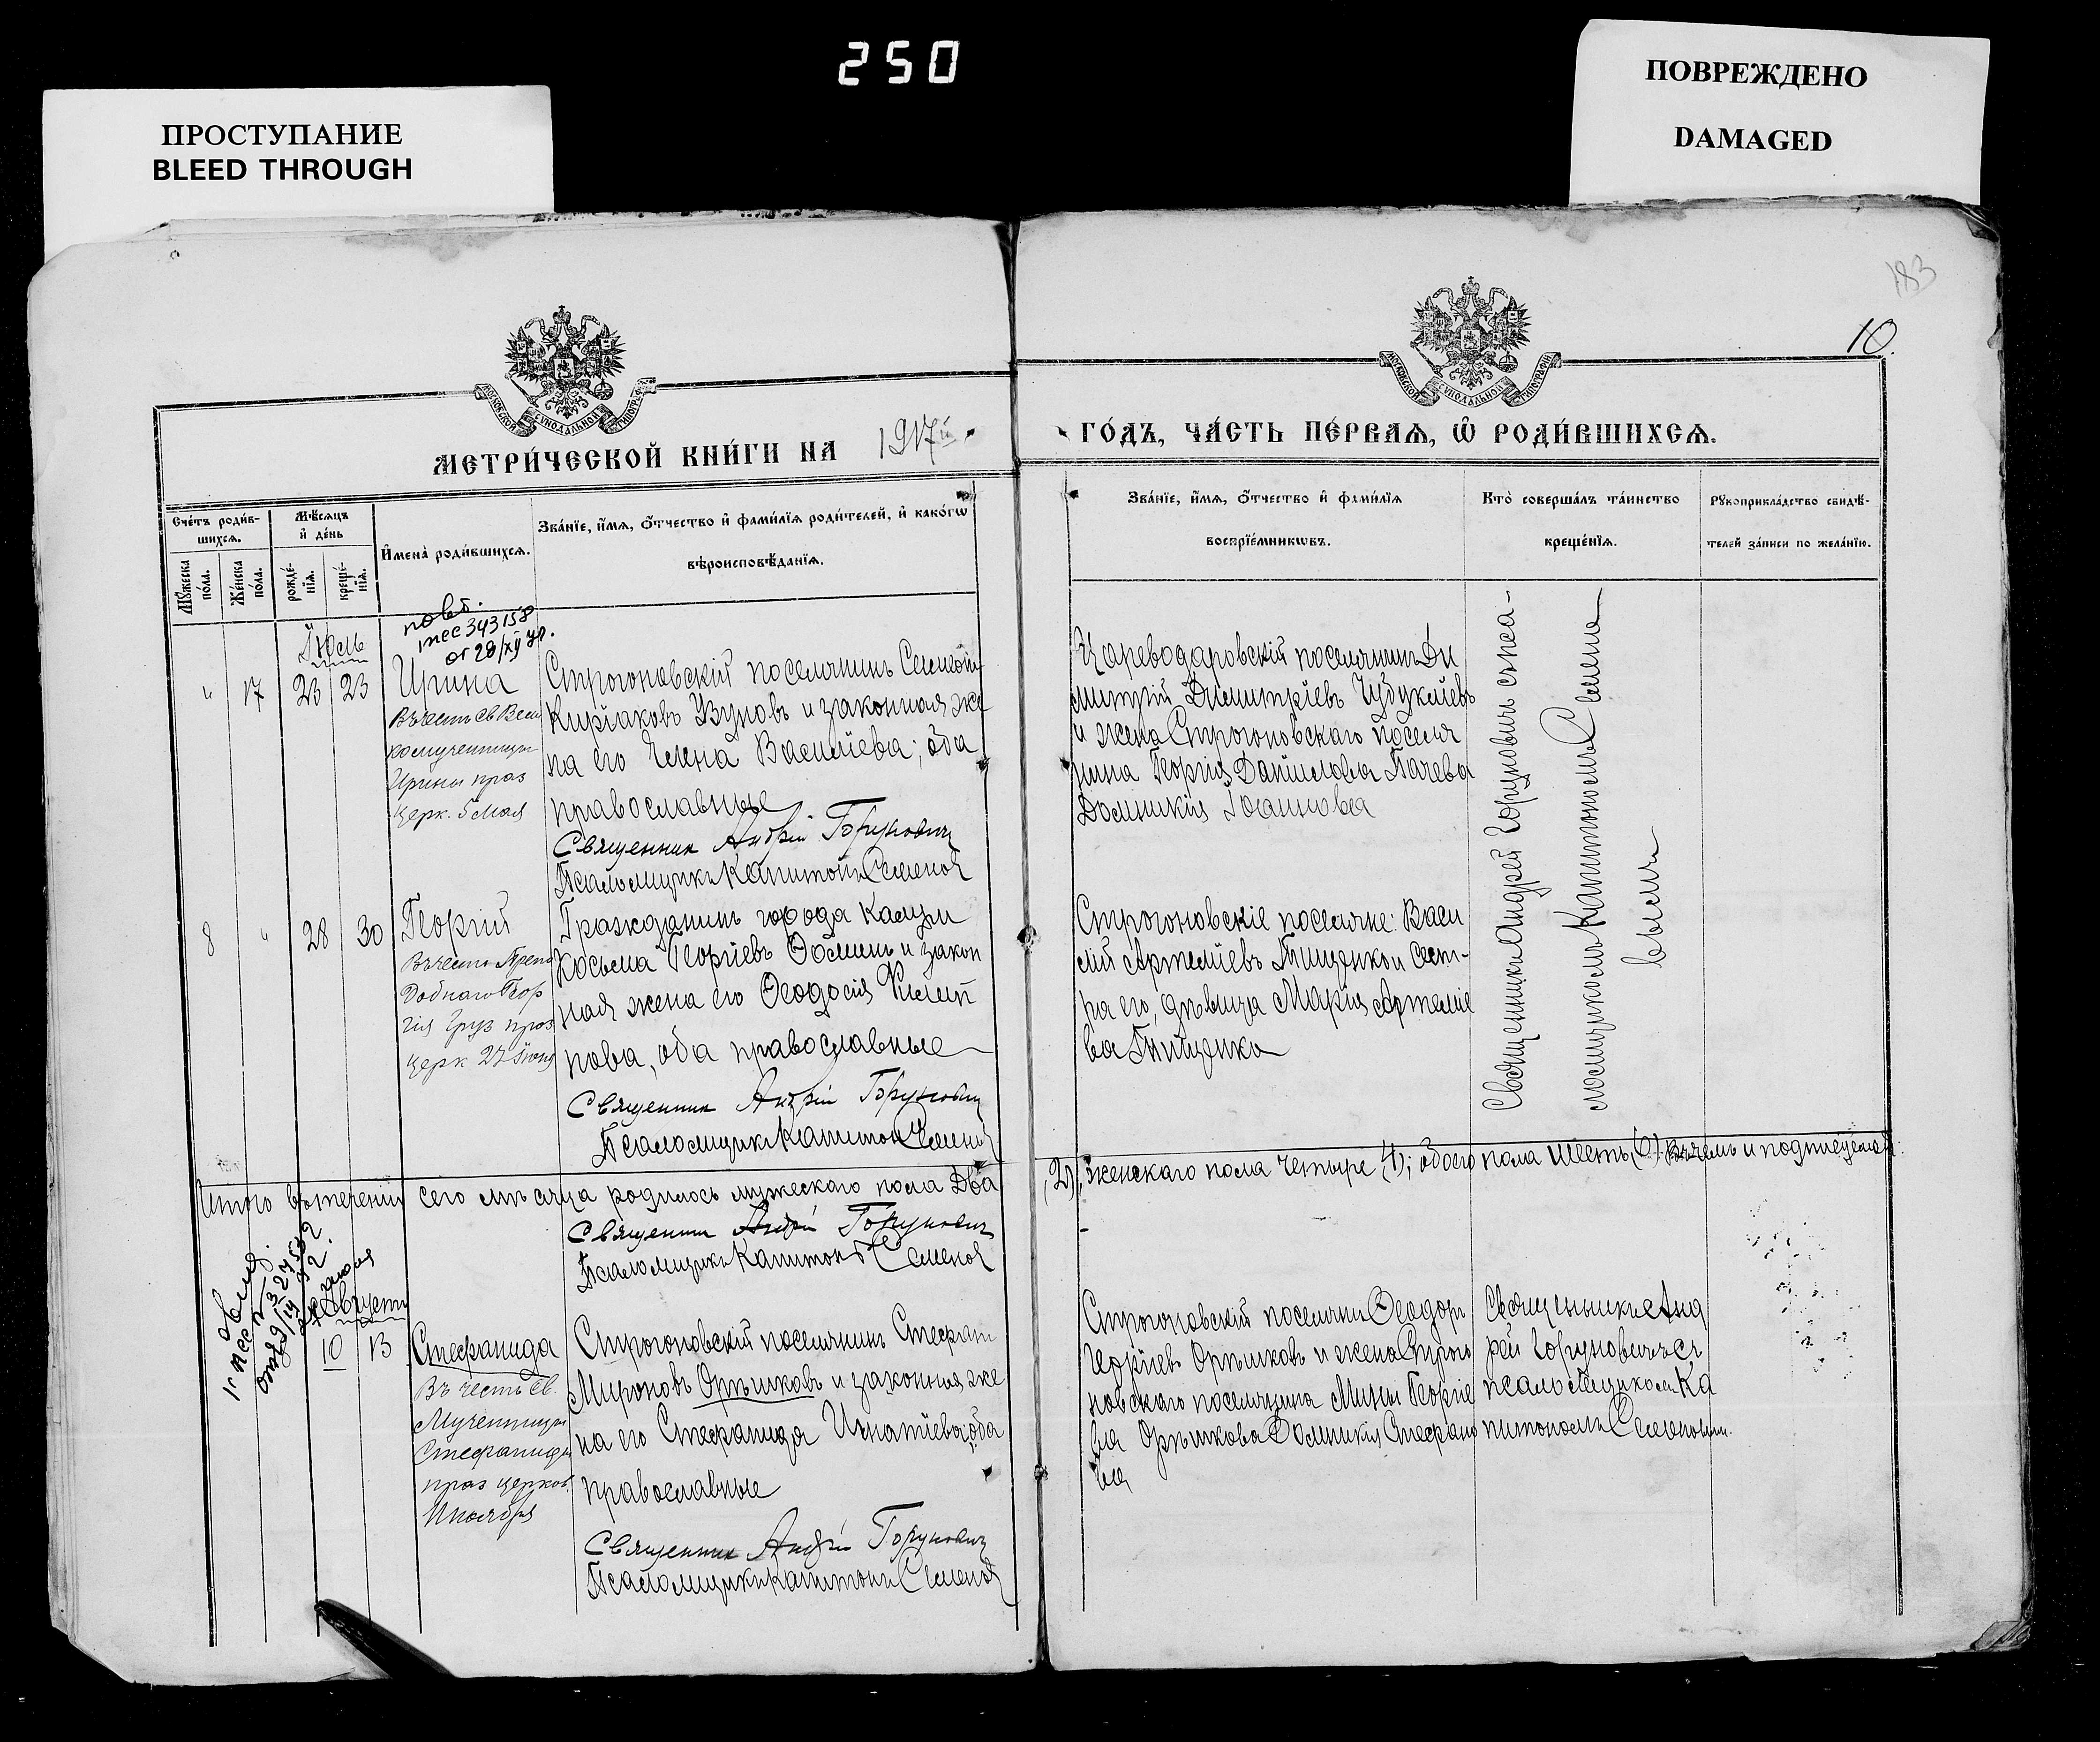 250
ПРОСТУПАНИЕ
BLEED THROUGH
ПОВРЕЖДЕНО
DAMAGED
183
10.
МЕТРИ́ЧЕСКОЙ КНИ́ГИ НА 1917й
ГО́ДЪ, ЧА́СТЬ ПЕ́РВАЯ, Ѿ РОДИ́ВШИХСЯ.
Сче́тъ роди́в-
шихся.
Мѣ́сяцъ
и де́нь
Мꙋ́жеска по́ла.
Же́нска по́ла.
рожде́-
нїя.
креще́-
нїя.
И҆мена̀ роди́вшихся.
Зва́нїе, и҆́мя, ѻ҆́тчество и҆ фами́лїя роди́телей, и҆ како́гѡ
вѣроисповѣ́данїя.
Зва́нїе, и҆́мя, ѻ҆́тчество и҆ фами́лїя
воспрїе́мникѡвъ.
Кто̀ соверша́лъ та́инство
креще́нїя.
Рꙋкоприкла́дство свидѣ́-
телей за́писи по жела́нїю.
повт.
343158
от 28/XII
Іюль
" 17 23 23
Ирина
Въ честь св Вели
комученицы
Ирины праз
церк. 5 Мая
Строгоновскій поселянинъ
Киріаковъ Узуновъ и законная же
на его Елена Васильева; оба
православные
Священник Андрій Горунович
Псаломщикъ Капитонъ Семенов
Цареводаровскій поселянинъ Ди
митрій Димитріевъ Чубукчіевъ
и жена Строгоновскаго поселя
нина Георгія Даніилова Пачева
Домникія Іоаннова
Священникъ Андрей Горуновичъ съ пса-
ломщикомъ Капитономъ Семено
вымъ
8 " 28 30
Георгій
Въ честь Препо
добнаго Геор
гія праз
церк 27 Іюня
Гражданинъ города
Косьма Георгіевъ и закон
ная жена его Ѳеодосія Филип
пова, оба православные
Священник Андрій Горунович
Псаломщикъ Капитон Семенов
Строгоновскіе поселяне: Васи
лій Артеміевъ Тищенко и сест-
ра его, дѣвица Марія Артеміе
ва Тищенко
Итого въ теченіи сего мѣсяца родилось мужескаго пола два
(2), женскаго пола четыре (4); обоего пола шесть (6). Въ чемъ и подписуемся:
Священник Андрій Горунович
Псаломщикъ Капитон Семенов
Августъ
10 13
Стефанида
Въ честь Св.
Мученицы
Стефаниды
праз церков.
11 ноября
Строгоновскій поселянинъ Стефанъ
Мироновъ Орѣшковъ и законная же
на его Стефанида Игнатіева; оба
православные
Священник Андрій Горунович
Псаломщикъ Капитонъ Семенов
Строгоновскій поселянинъ Ѳеодоръ
Георгіевъ Орѣшковъ и жена Строго
новскаго поселянина Мины Георгіе
ва Орѣшкова Домникія Стефано
ва
Священникъ Анд
рей Горуновичъ съ
псаломщикомъ Ка
питономъ Семеновым.